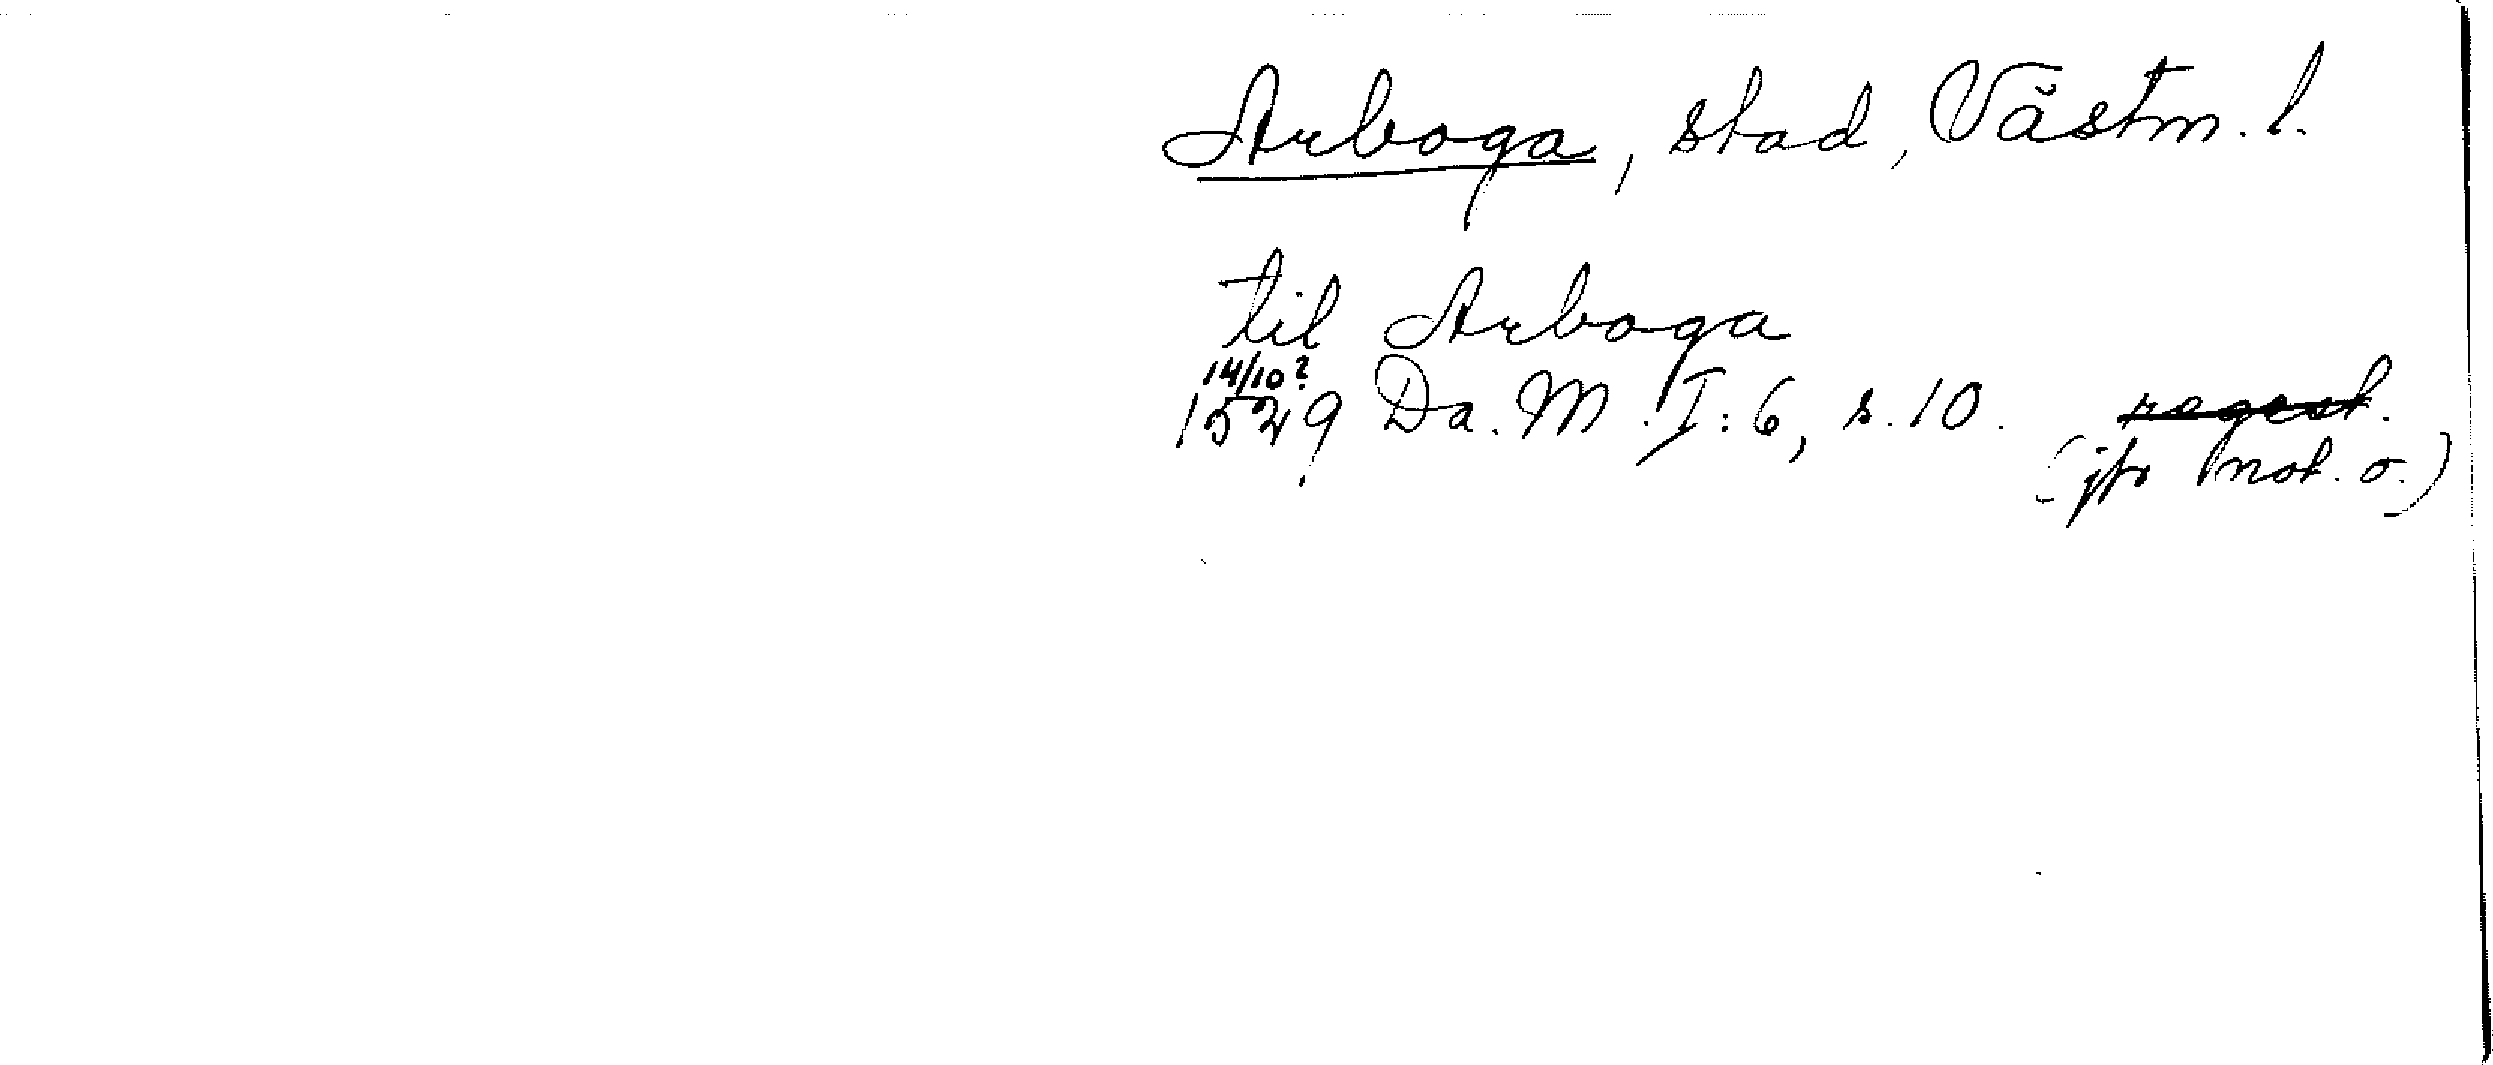 Arboga, stad, Västm. l.
til Arboga
14/10?
1549 Da. M. I: 6, s. 10. regest.
(jfr not. o.)